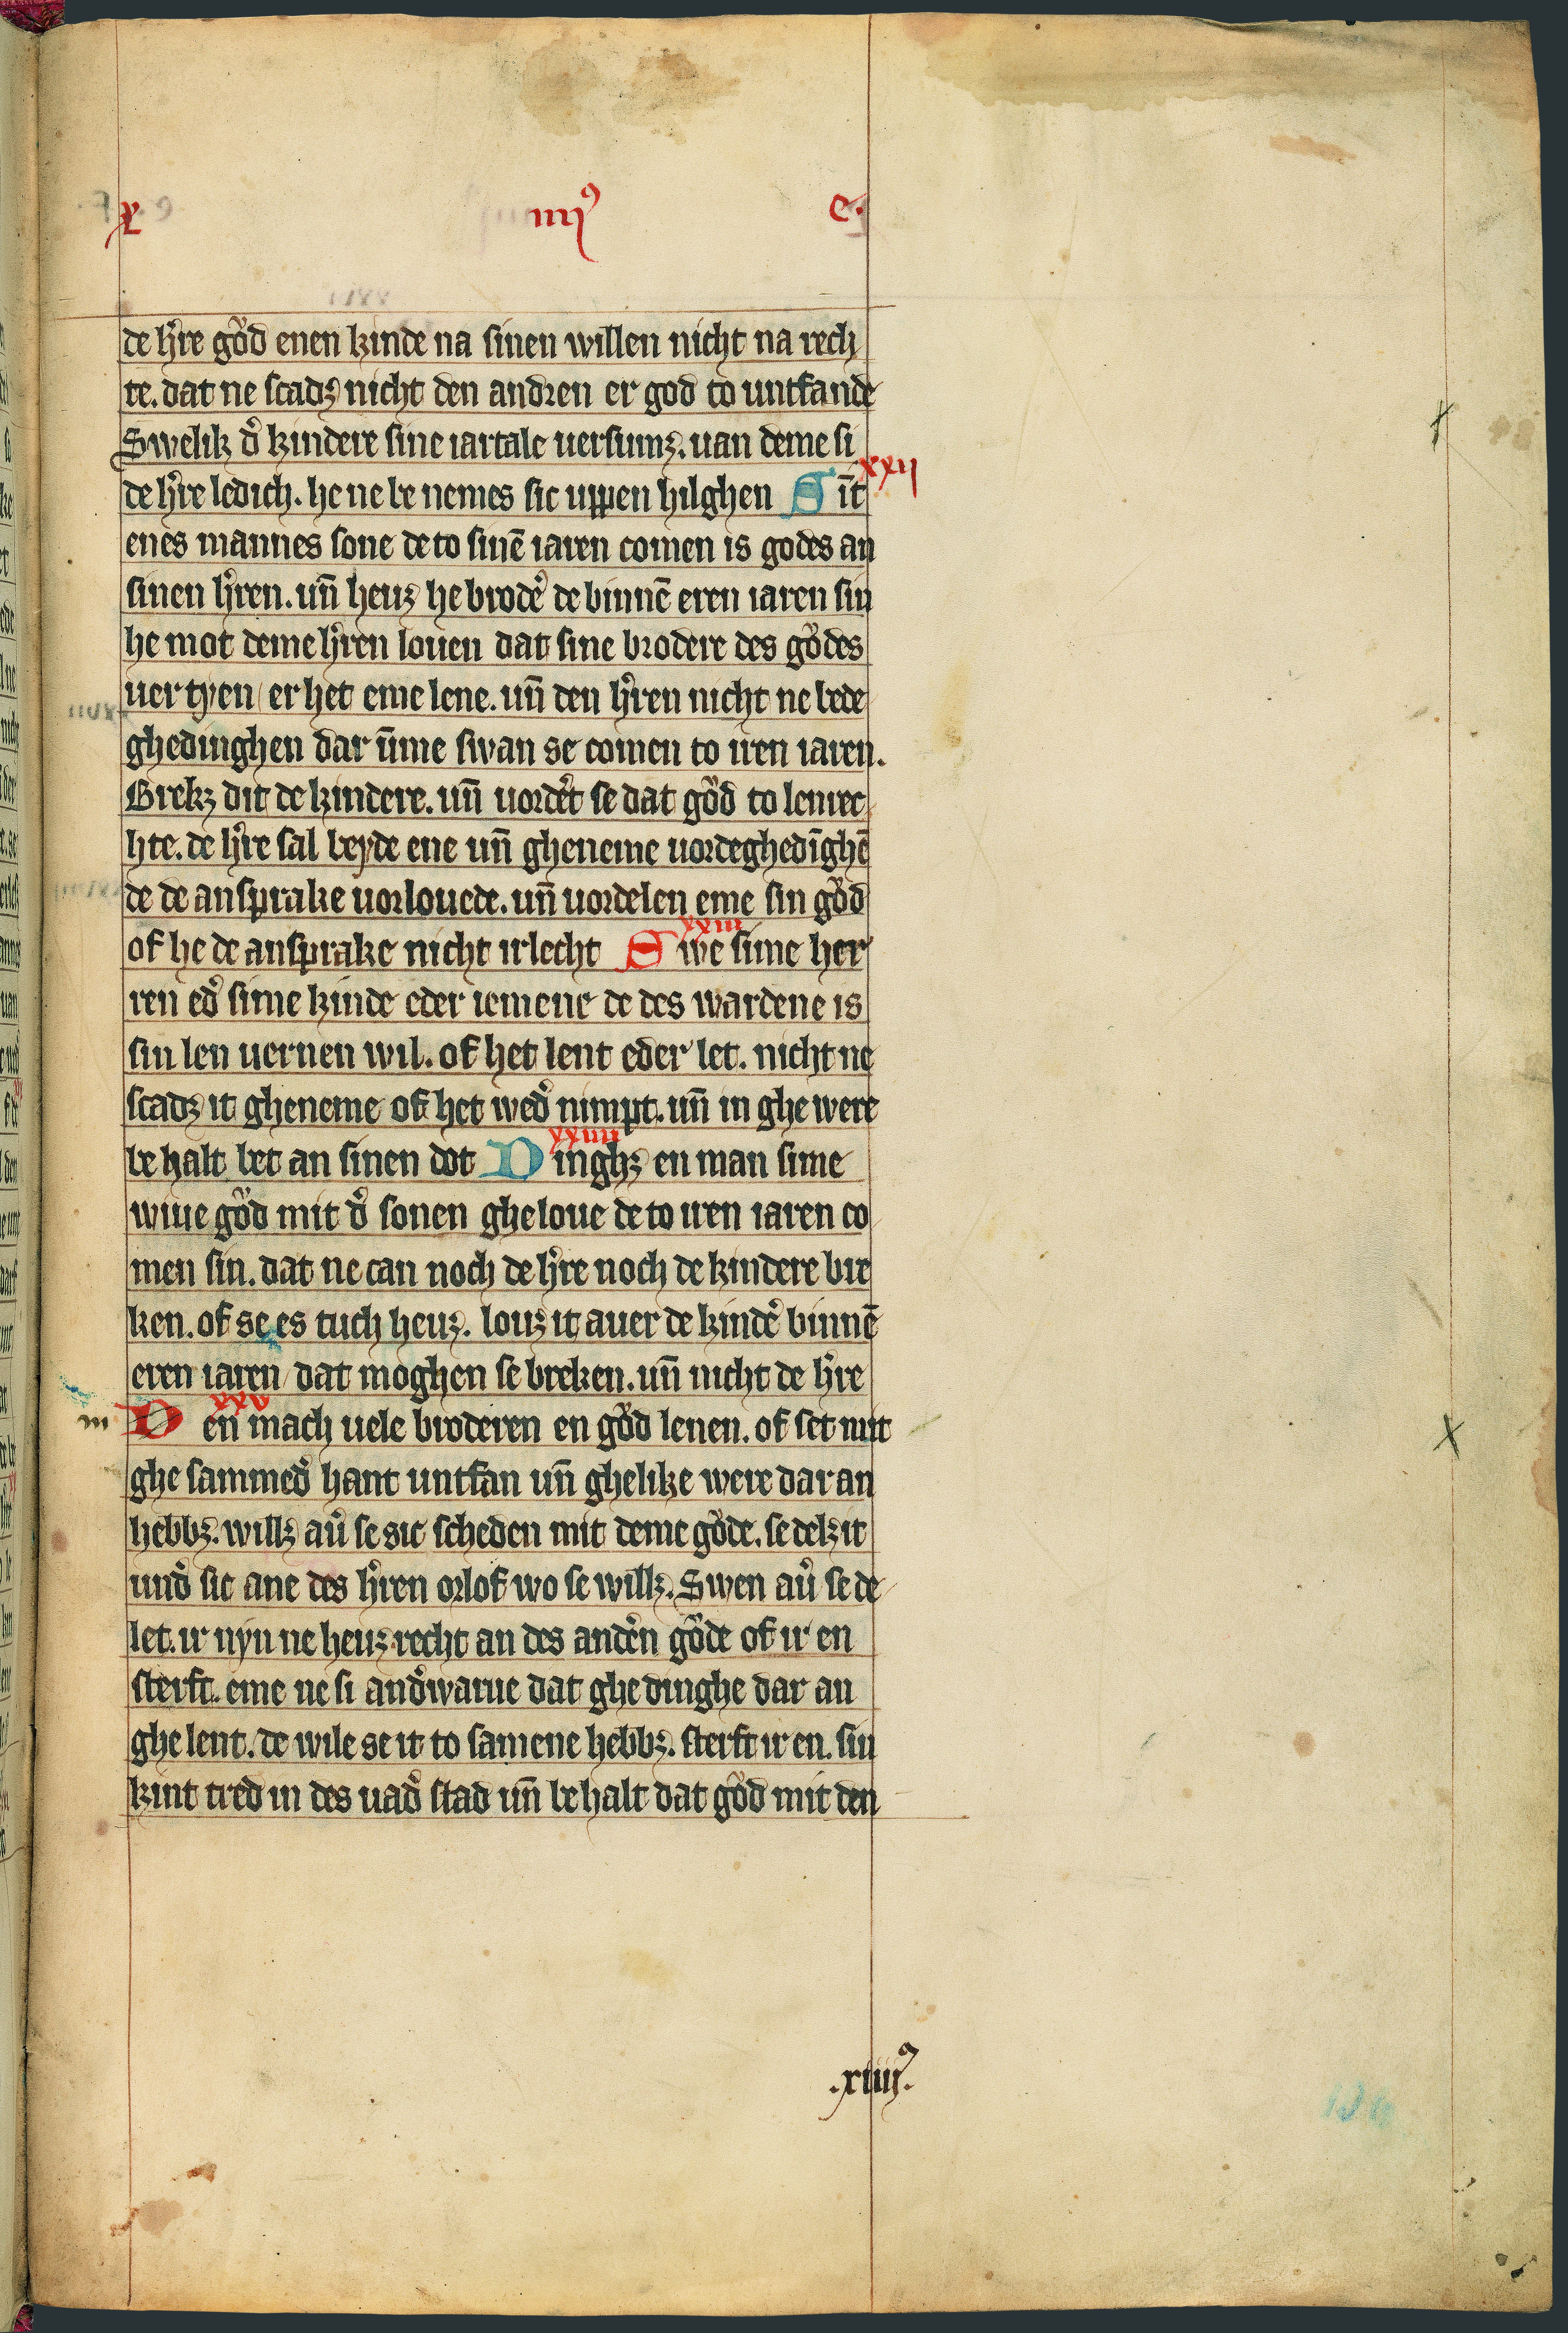 x iiij⁹ e.
de hͤre gůd enen kinde na sinen willen nicht na rech
te. dat ne scadꝫ nicht den andren er god to untfande
Swelik dͤ kindere sine iartale uersumꝫ. uan deme si
de hͤre ledich. he ne be nemes sic uppen hilghen Sīt
xxij
enes mannes sone de to sinē iaren comen is godes an
sinen hͤren. un̄ heuꝫ he brodeͬ de binnē eren iaren sin
he mot deme hͤren louen dat sine brodere des gůdes
uer tyen er het eme lene. un̄ den hͤren nicht ne bede
ghedinghen dar ūme swan se comen to iren iaren.
Brekꝫ dit de kindere. un̄ uordeͬt se dat gůd to lenrec
hte. de hͤre sal beyde ene un̄ gheneme uordeghedīghē
de de ansprake uorlouede. un̄ uordelen eme sin gůd
xxiii
of he de ansprake nicht irlecht Swe sime her
ren edͤ sime kinde eder iemene de des wardene is
sin len uernen wil. of het lent eder let. nicht ne
scadꝫ it gheneme of het wedͤ nimpt. un̄ in ghe were
xxiiii
be halt bet an sinen dot Dinghꝫ en man sime
wiue gůd mit dͤ sonen ghe loue de to iren iaren co
men sin. dat ne can noch de hͤre noch de kindere bre
ken. of se es tuch heuꝫ. louꝫ it auer de kindeͬ binnē
eren iaren dat moghen se breken. un̄ nicht de hͤre
xxv
m Den mach uele broderen en gůd lenen. of set mit
ghe sammedͤ hant untfan un̄ ghelike were dar an
hebbꝫ. willꝫ auͤ se sic scheden mit deme gůde. se delꝫ it
undͤ sic ane des hͤren orlof wo se willꝫ. Swen auͤ se de
let. ir nyn ne heuꝫ recht an des andeͬn gůde of ir en
sterft. eme ne si andͤwarue dat ghe dinghe dar an
ghe lent. de wile se it to samene hebbꝫ. sterft ir en. sin
kint tred in des uadͤ stad un̄ be halt dat gůd mit den
.xiiij⁹.